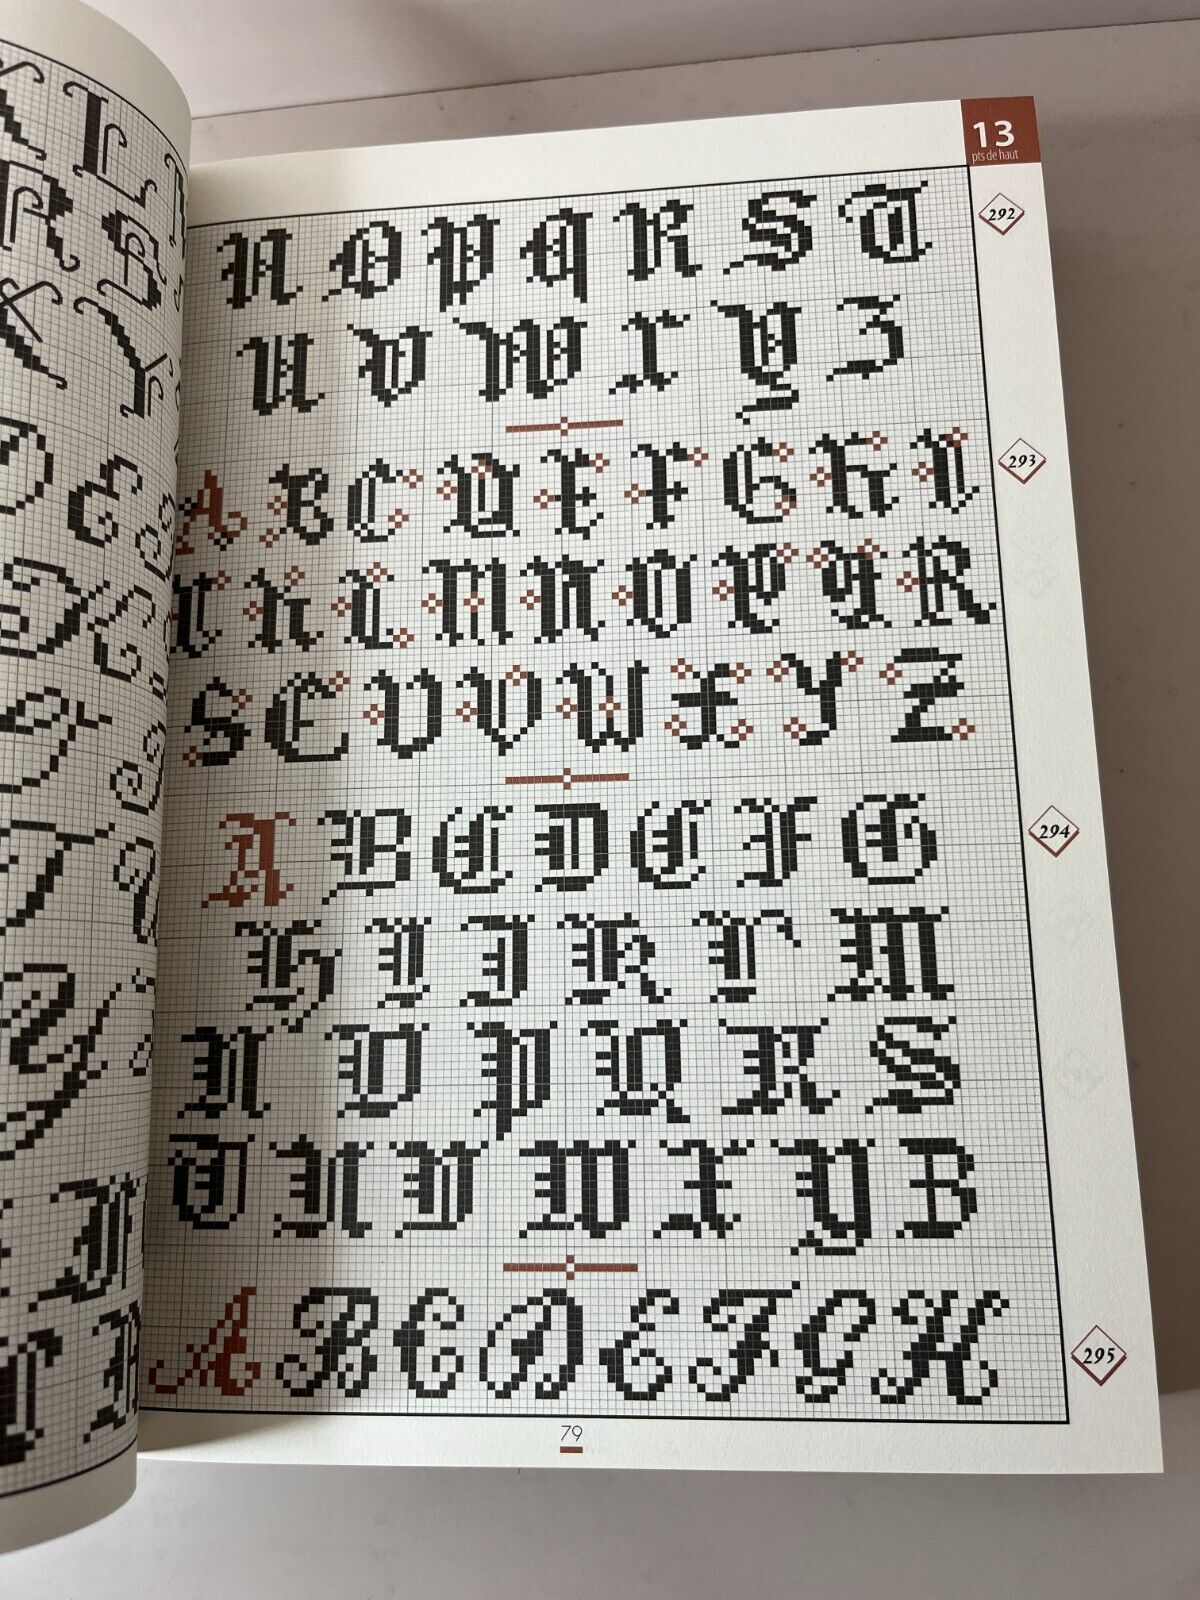 13
pts de haut
292
N O P Q R S T
U V W X Y Z
293
A B C D E F G H I
J K L M N O P Q R
S T U V W X Y Z
294
A B C D E F G
H I J K L M
N O P Q R S
T U V W X Y Z
295
A B C D E F G H
79